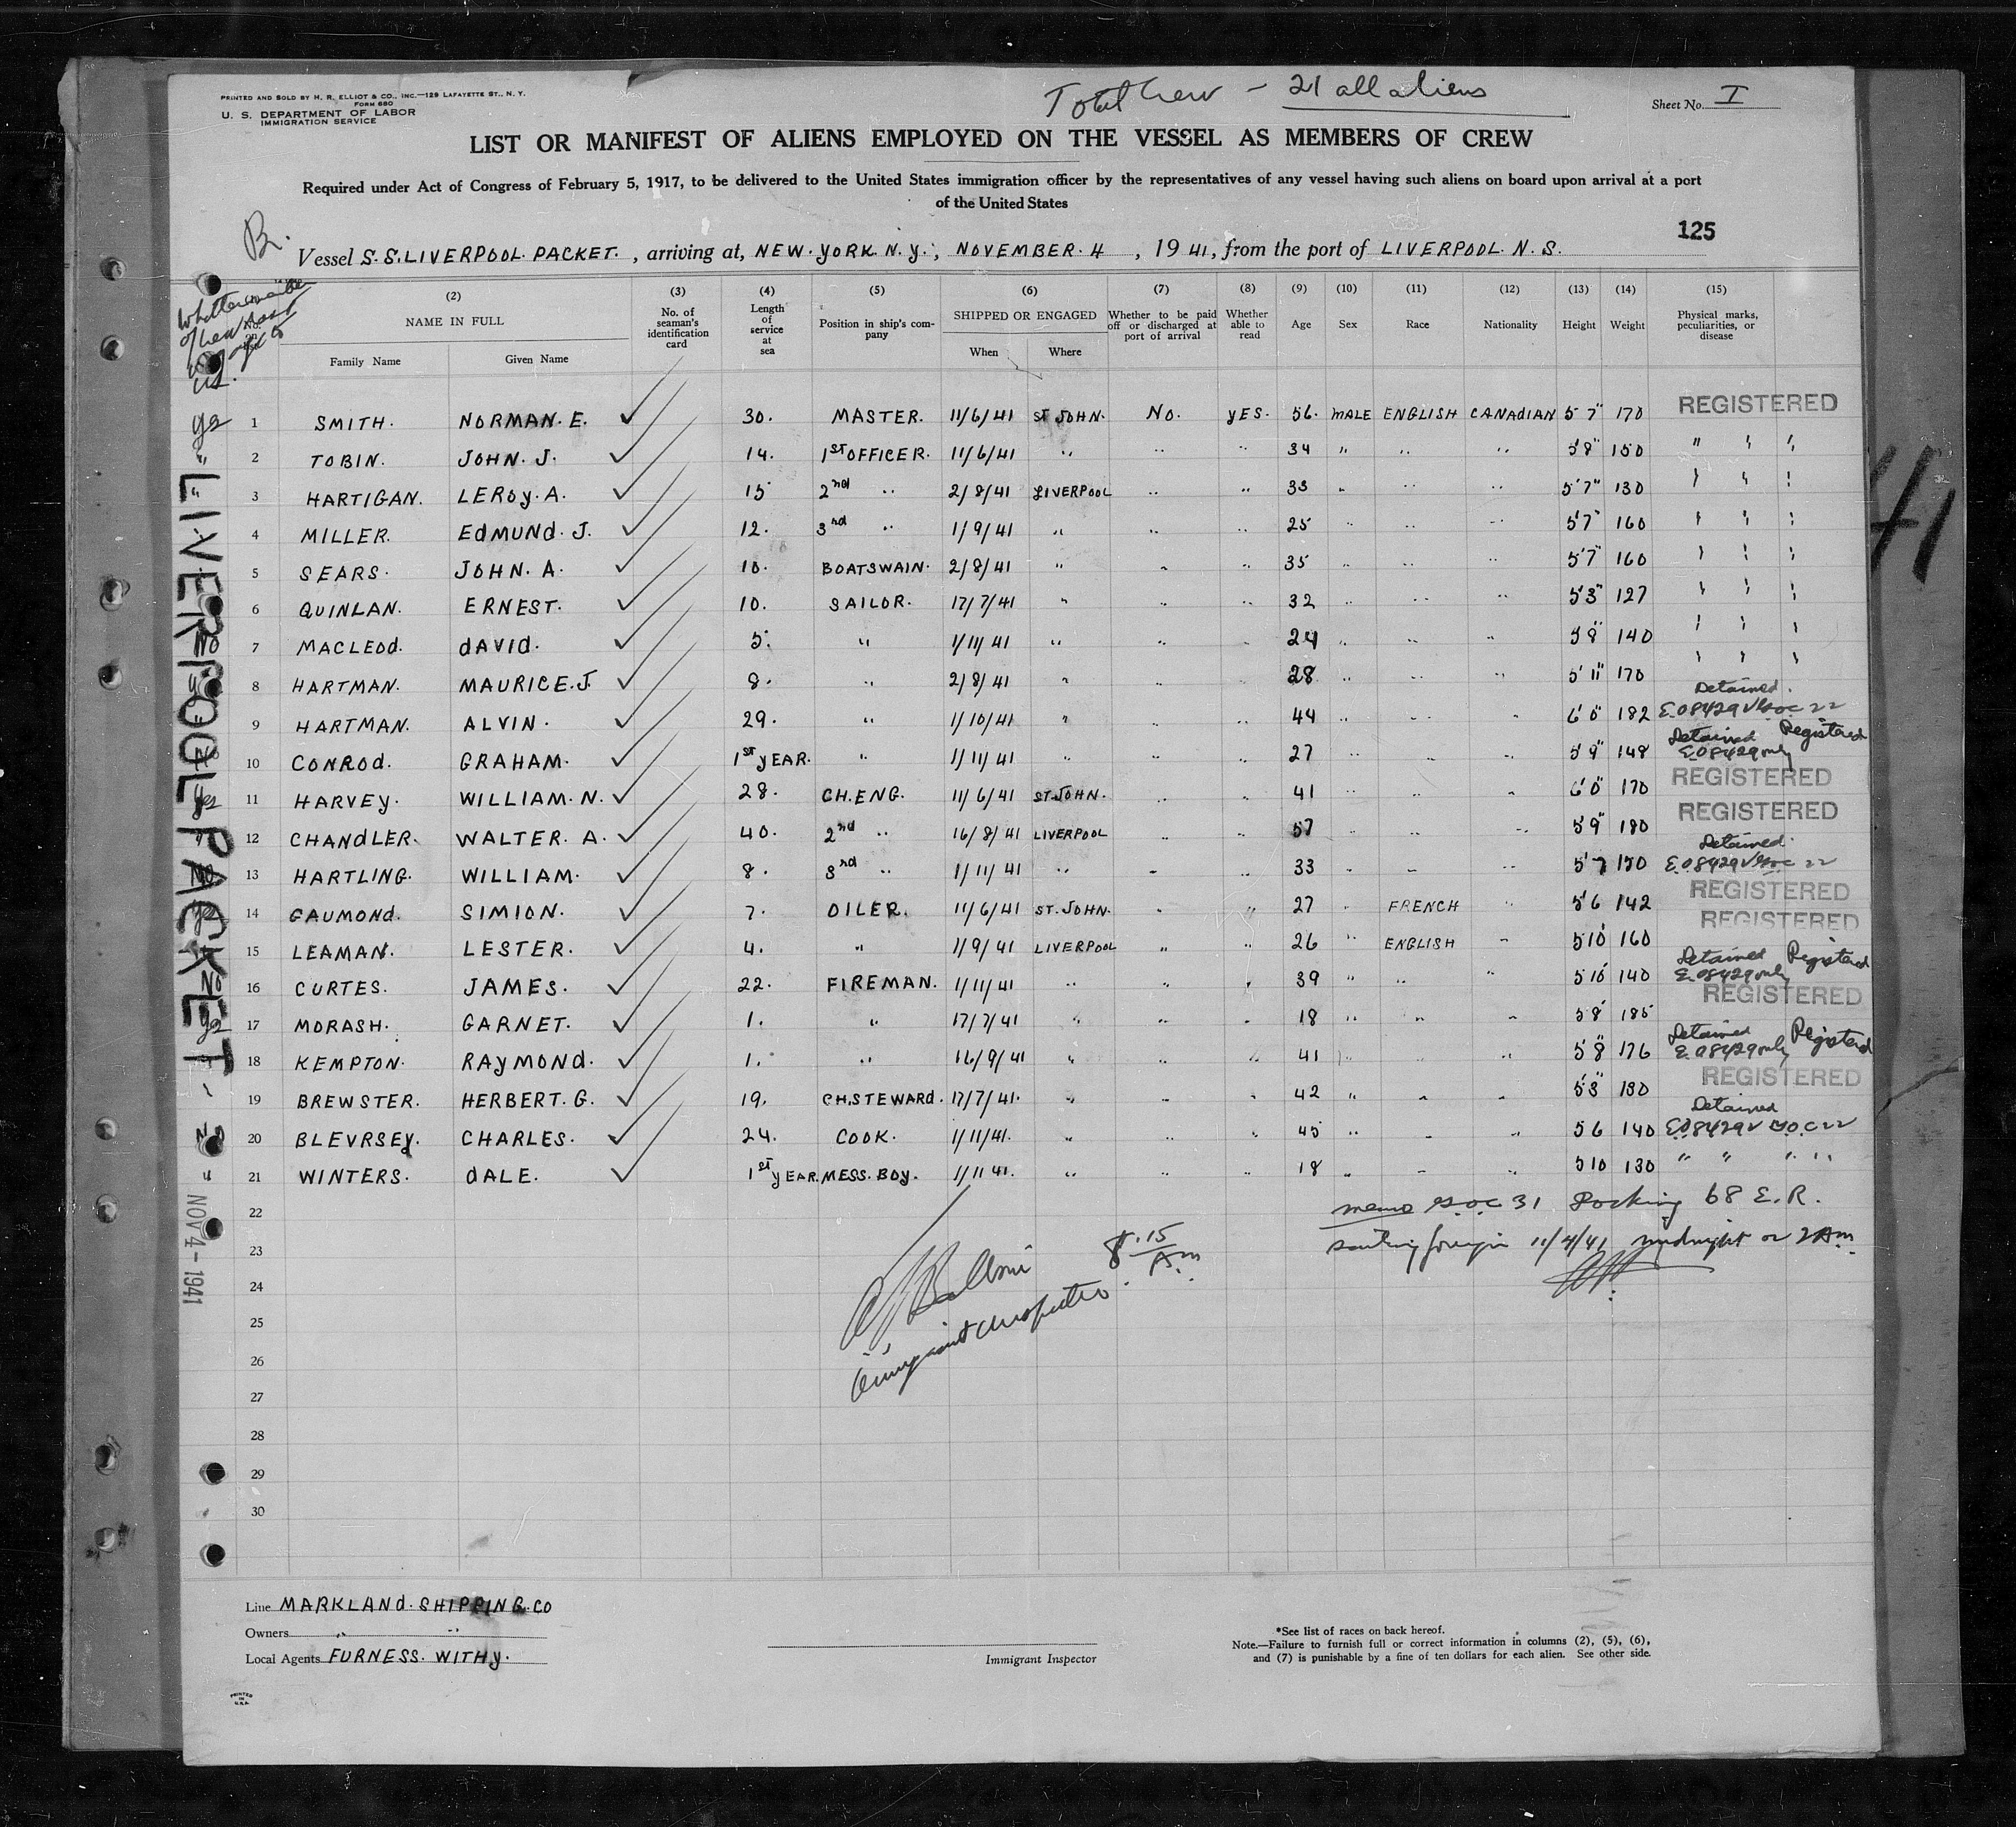 PRINTED AND SOLD BY H. R. ELLIOT & CO., INC.—129 LAFAYETTE ST., N. Y.
FORM 680
U. S. DEPARTMENT OF LABOR
IMMIGRATION SERVICE
Total Crew - 21 all aliens
Sheet No. I
LIST OR MANIFEST OF ALIENS EMPLOYED ON THE VESSEL AS MEMBERS OF CREW
Required under Act of Congress of February 5, 1917, to be delivered to the United States immigration officer by the representatives of any vessel having such aliens on board upon arrival at a port
of the United States
125
Vessel S.S. LIVERPOOL. PACKET. , arriving at, NEW. YORK. N. Y. , NOVEMBER. 4 , 1941, from the port of LIVERPOOL. N. S.
(2) (3) (4) (5) (6) (7) (8) (9) (10) (11) (12) (13) (14) (15)
NAME IN FULL No. of seaman's identification card Length of service at sea Position in ship's company SHIPPED OR ENGAGED Whether to be paid off or discharged at port of arrival Whether able to read Age Sex Race Nationality Height Weight Physical marks, peculiarities, or disease
Family Name Given Name When Where
1 SMITH. NORMAN. E. 30. MASTER. 11/6/41 ST JOHN. No. YES. 56. MALE ENGLISH CANADIAN 5 7" 170 REGISTERED
2 TOBIN. JOHN. J. 14. 1ST OFFICER. 11/6/41 " " " 34 " " " 5'8" 150 " " "
3 HARTIGAN. LEROY. A. 15 2nd " 2/8/41 LIVERPOOL " " 33 " " " 5'7" 130 " " "
4 MILLER. EDMUND. J. 12. 3rd " 1/9/41 " " " 25 " " " 5'7" 160 " " "
5 SEARS. JOHN. A. 10. BOATSWAIN. 2/8/41 " " " 35 " " " 5'7" 160 " " "
6 QUINLAN. ERNEST. 10. SAILOR. 17/7/41 " " " 32 " " " 5'3" 127 " " "
7 MACLEOD. DAVID. 5. " 1/11/41 " " " 24 " " " 5'8" 140 " " "
8 HARTMAN. MAURICE. J. 8. " 2/8/41 " " " 28 " " " 5'11" 170 " " "
9 HARTMAN. ALVIN. 29. " 1/10/41 " " " 44 " " " 6'0" 182 Detained. E.O 8429
10 CONROD. GRAHAM. 1ST YEAR. " 1/11/41 " " " 27 " " " 5'9" 148 Detained E.O 8429 only Registered
11 HARVEY. WILLIAM. N. 28. CH. ENG. 11/6/41 ST. JOHN. " " 41 " " " 6'0" 170 REGISTERED
12 CHANDLER. WALTER. A. 40. 2nd " 16/8/41 LIVERPOOL " " 57 " " " 5'9" 180 REGISTERED
13 HARTLING. WILLIAM. 8. 3rd " 1/11/41 " " " 33 " " " 5'7 150 Detained. E.O 8429
14 GAUMOND. SIMION. 7. OILER. 11/6/41 ST. JOHN. " " 27 " FRENCH " 5'6 142 REGISTERED
15 LEAMAN. LESTER. 4. " 1/9/41 LIVERPOOL " " 26 " ENGLISH " 5 10 160 REGISTERED
16 CURTES. JAMES. 22. FIREMAN. 1/11/41 " " " 39 " " " 5 10 140 Detained E.O 8429 only Registered
17 MORASH. GARNET. 1. " 17/7/41 " " " 18 " " " 5'8 185 REGISTERED
18 KEMPTON. RAYMOND. 1. " 16/9/41 " " " 41 " " " 5'8" 176 Detained E.O 8429 only Registered
19 BREWSTER. HERBERT. G. 19. CH. STEWARD. 17/7/41. " " " 42 " " " 5'3" 130 REGISTERED
20 BLEVRSEY. CHARLES. 24. COOK. 1/11/41. " " " 45 " " " 5 6 140 Detained E.O 8429
21 WINTERS. DALE. 1st YEAR. MESS. BOY. 1/11 41. " " " 18 " " " 5 10 130 " " " "
22
23
24
25
26
27
28
29
30
LIVERPOOL PACKET -
NOV 4-1941
41
memo G.O.C 31 Docking 68 E.R.
sailing foreign 11/4/41 midnight or 2 Am
8.15 A.m
Line MARKLAND. SHIPPING. CO
Owners " "
Local Agents FURNESS. WITHY.
Immigrant Inspector
*See list of races on back hereof.
Note.—Failure to furnish full or correct information in columns (2), (5), (6),
and (7) is punishable by a fine of ten dollars for each alien. See other side.
PRINTED
IN
U.S.A.